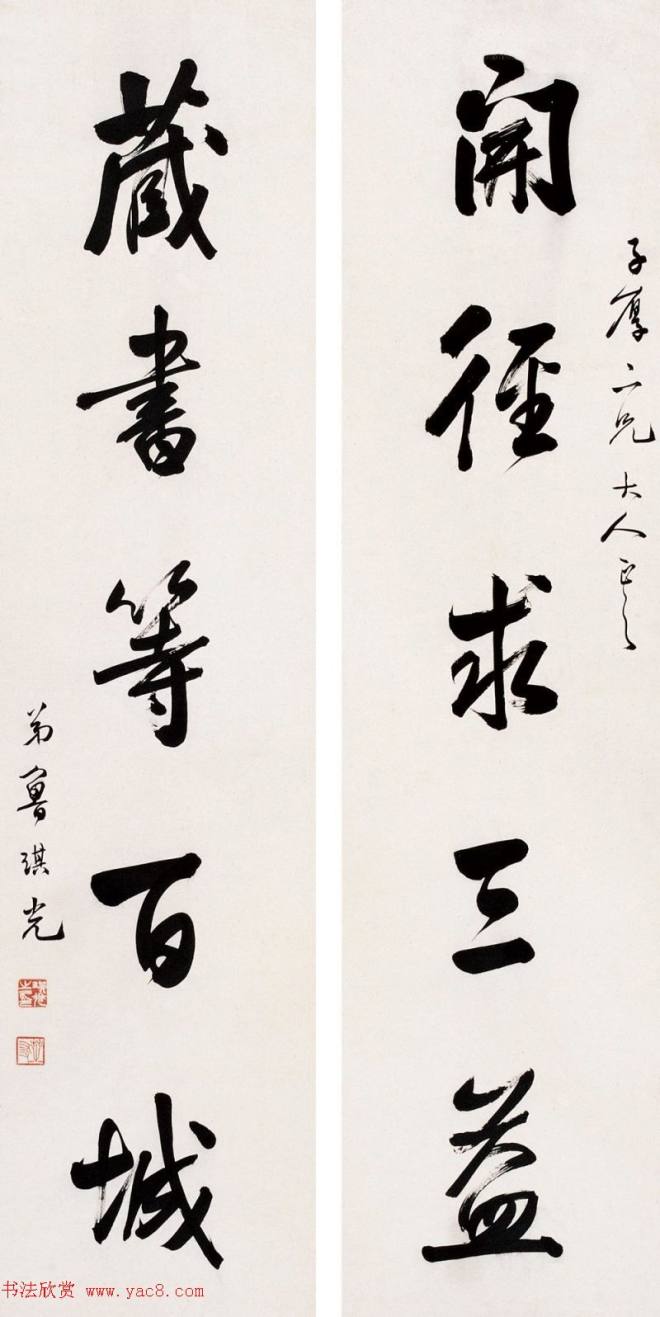 子厚二兄大人正之
開徑求三益
藏書等百城
弟魯琪光
书法欣赏 www.yac8.com